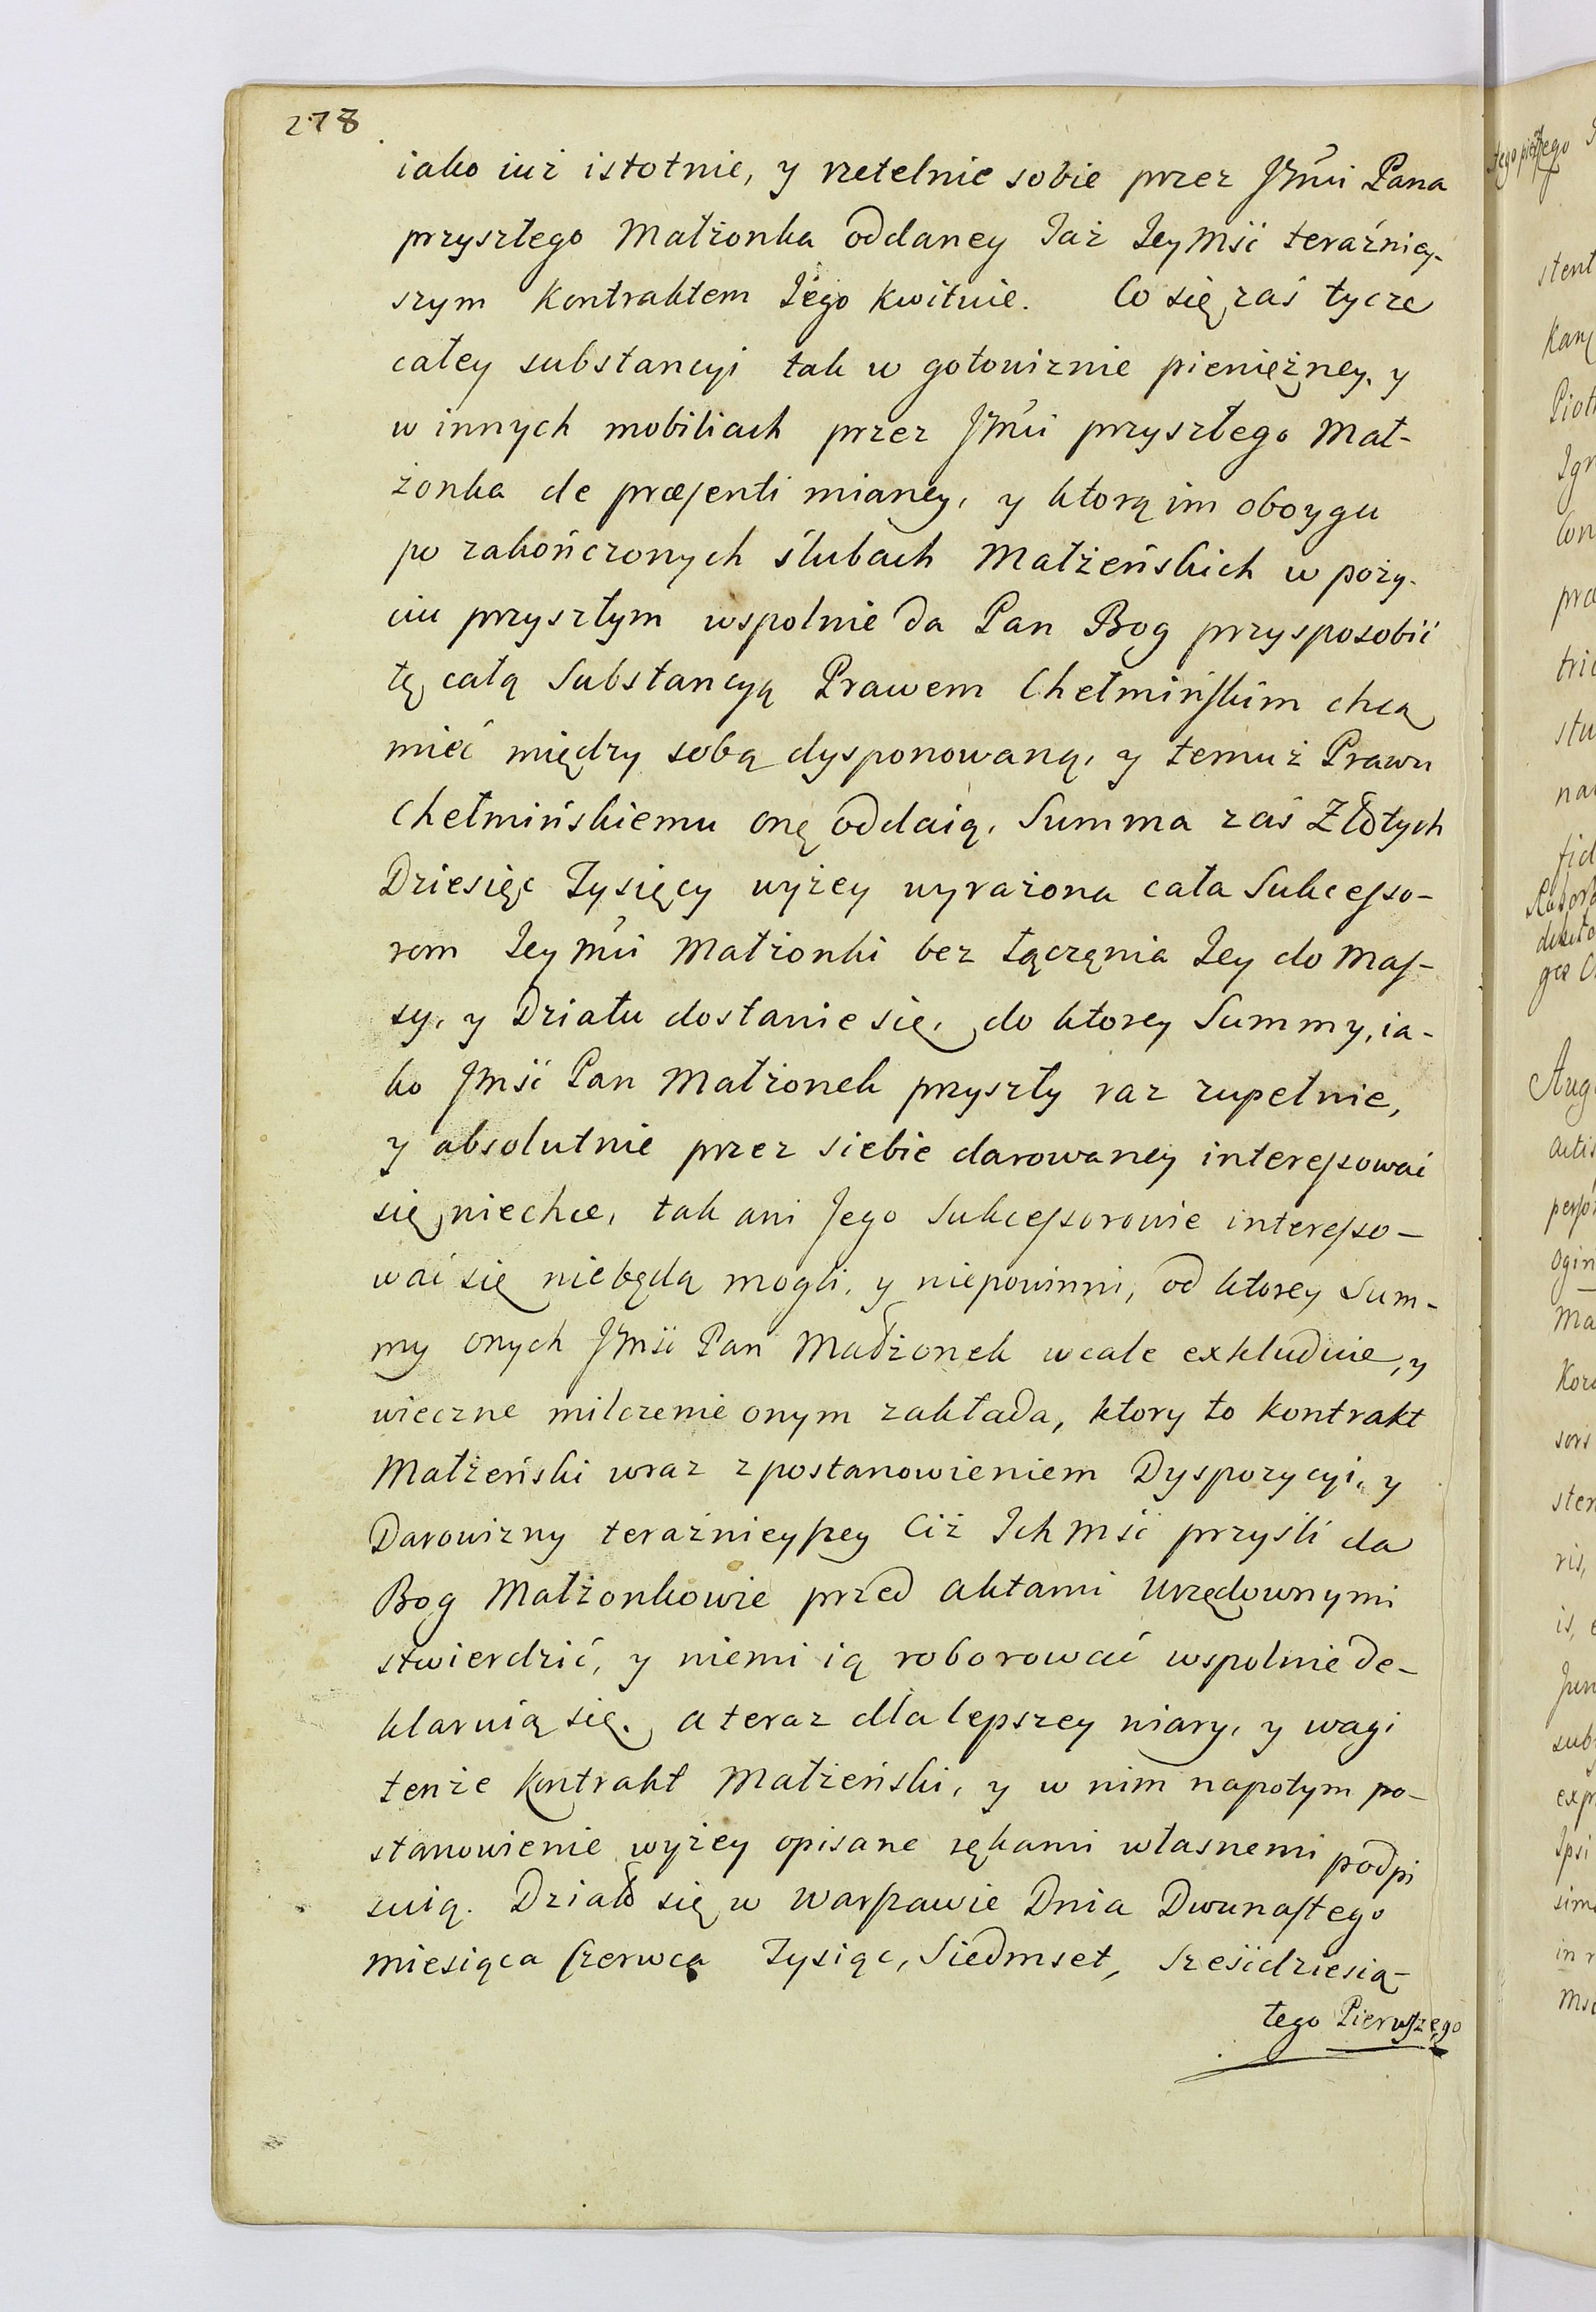 278
iako iuż istotnie, y rzetelnie sobie przez JMći Pana
przyszłego Małżonka oddaney Taż JeyMść teraźniey-
szym kontraktem Jego kwituie. Co się zaś tycze
całey substancyi tak w gotowiznie pieniężney, y
w innych mobiliach przez JMći przyszłego Mał-
żonka de præsenti mianey, y ktorą im oboygu
po zakończonych ślubach Małżeńskich w poży-
ciu przyszłym wspolnie da Pan Bog przysposobić
tę całą Substancyą Prawem Chełmińskim chcą
mieć między sobą dysponowaną, y temuż Prawu
Chełmińskiemu onę oddaią, Summa zaś Złotych
Dziesięc Tysięcy wyżey wyrażona cała Sukcesso-
rom Jey Mći Małżonki bez łączęnia Jey do Mas-
sy, y Działu dostanie się, do ktorey Summy, ia-
ko JMść Pan Małżonek przyszły raz zupełnie,
y absolutnie przez siebie darowaney interessować
się niechce, tak ani Jego Sukcessorowie interesso-
wać się niebędą mogli, y niepowinni, od ktorey Sum-
my onych JMść Pan Małżonek wcale exkluduie, y
wieczne milczenie onym zakłada, ktory to kontrakt
Małżeński wraz z postanowieniem Dyspozycyi, y
Darowizny teraźnieyszey Ciż IchMść przyśli da
Bog Małżonkowie przed aktami Urzędownymi
stwierdzić, y niemi ią roborować wspolnie de-
klaruią się. a teraz dla lepszey wiary, y wagi
tenże kontrakt Małżeński, y w nim napotym po-
stanowienie wyżey opisane rękami własnemi podpi
suią. Działo się w Warszawie Dnia Dwunastego
miesiąca Czerwca Tysiąc, Siedmset, Sześćdziesią-
tego Pierwszego